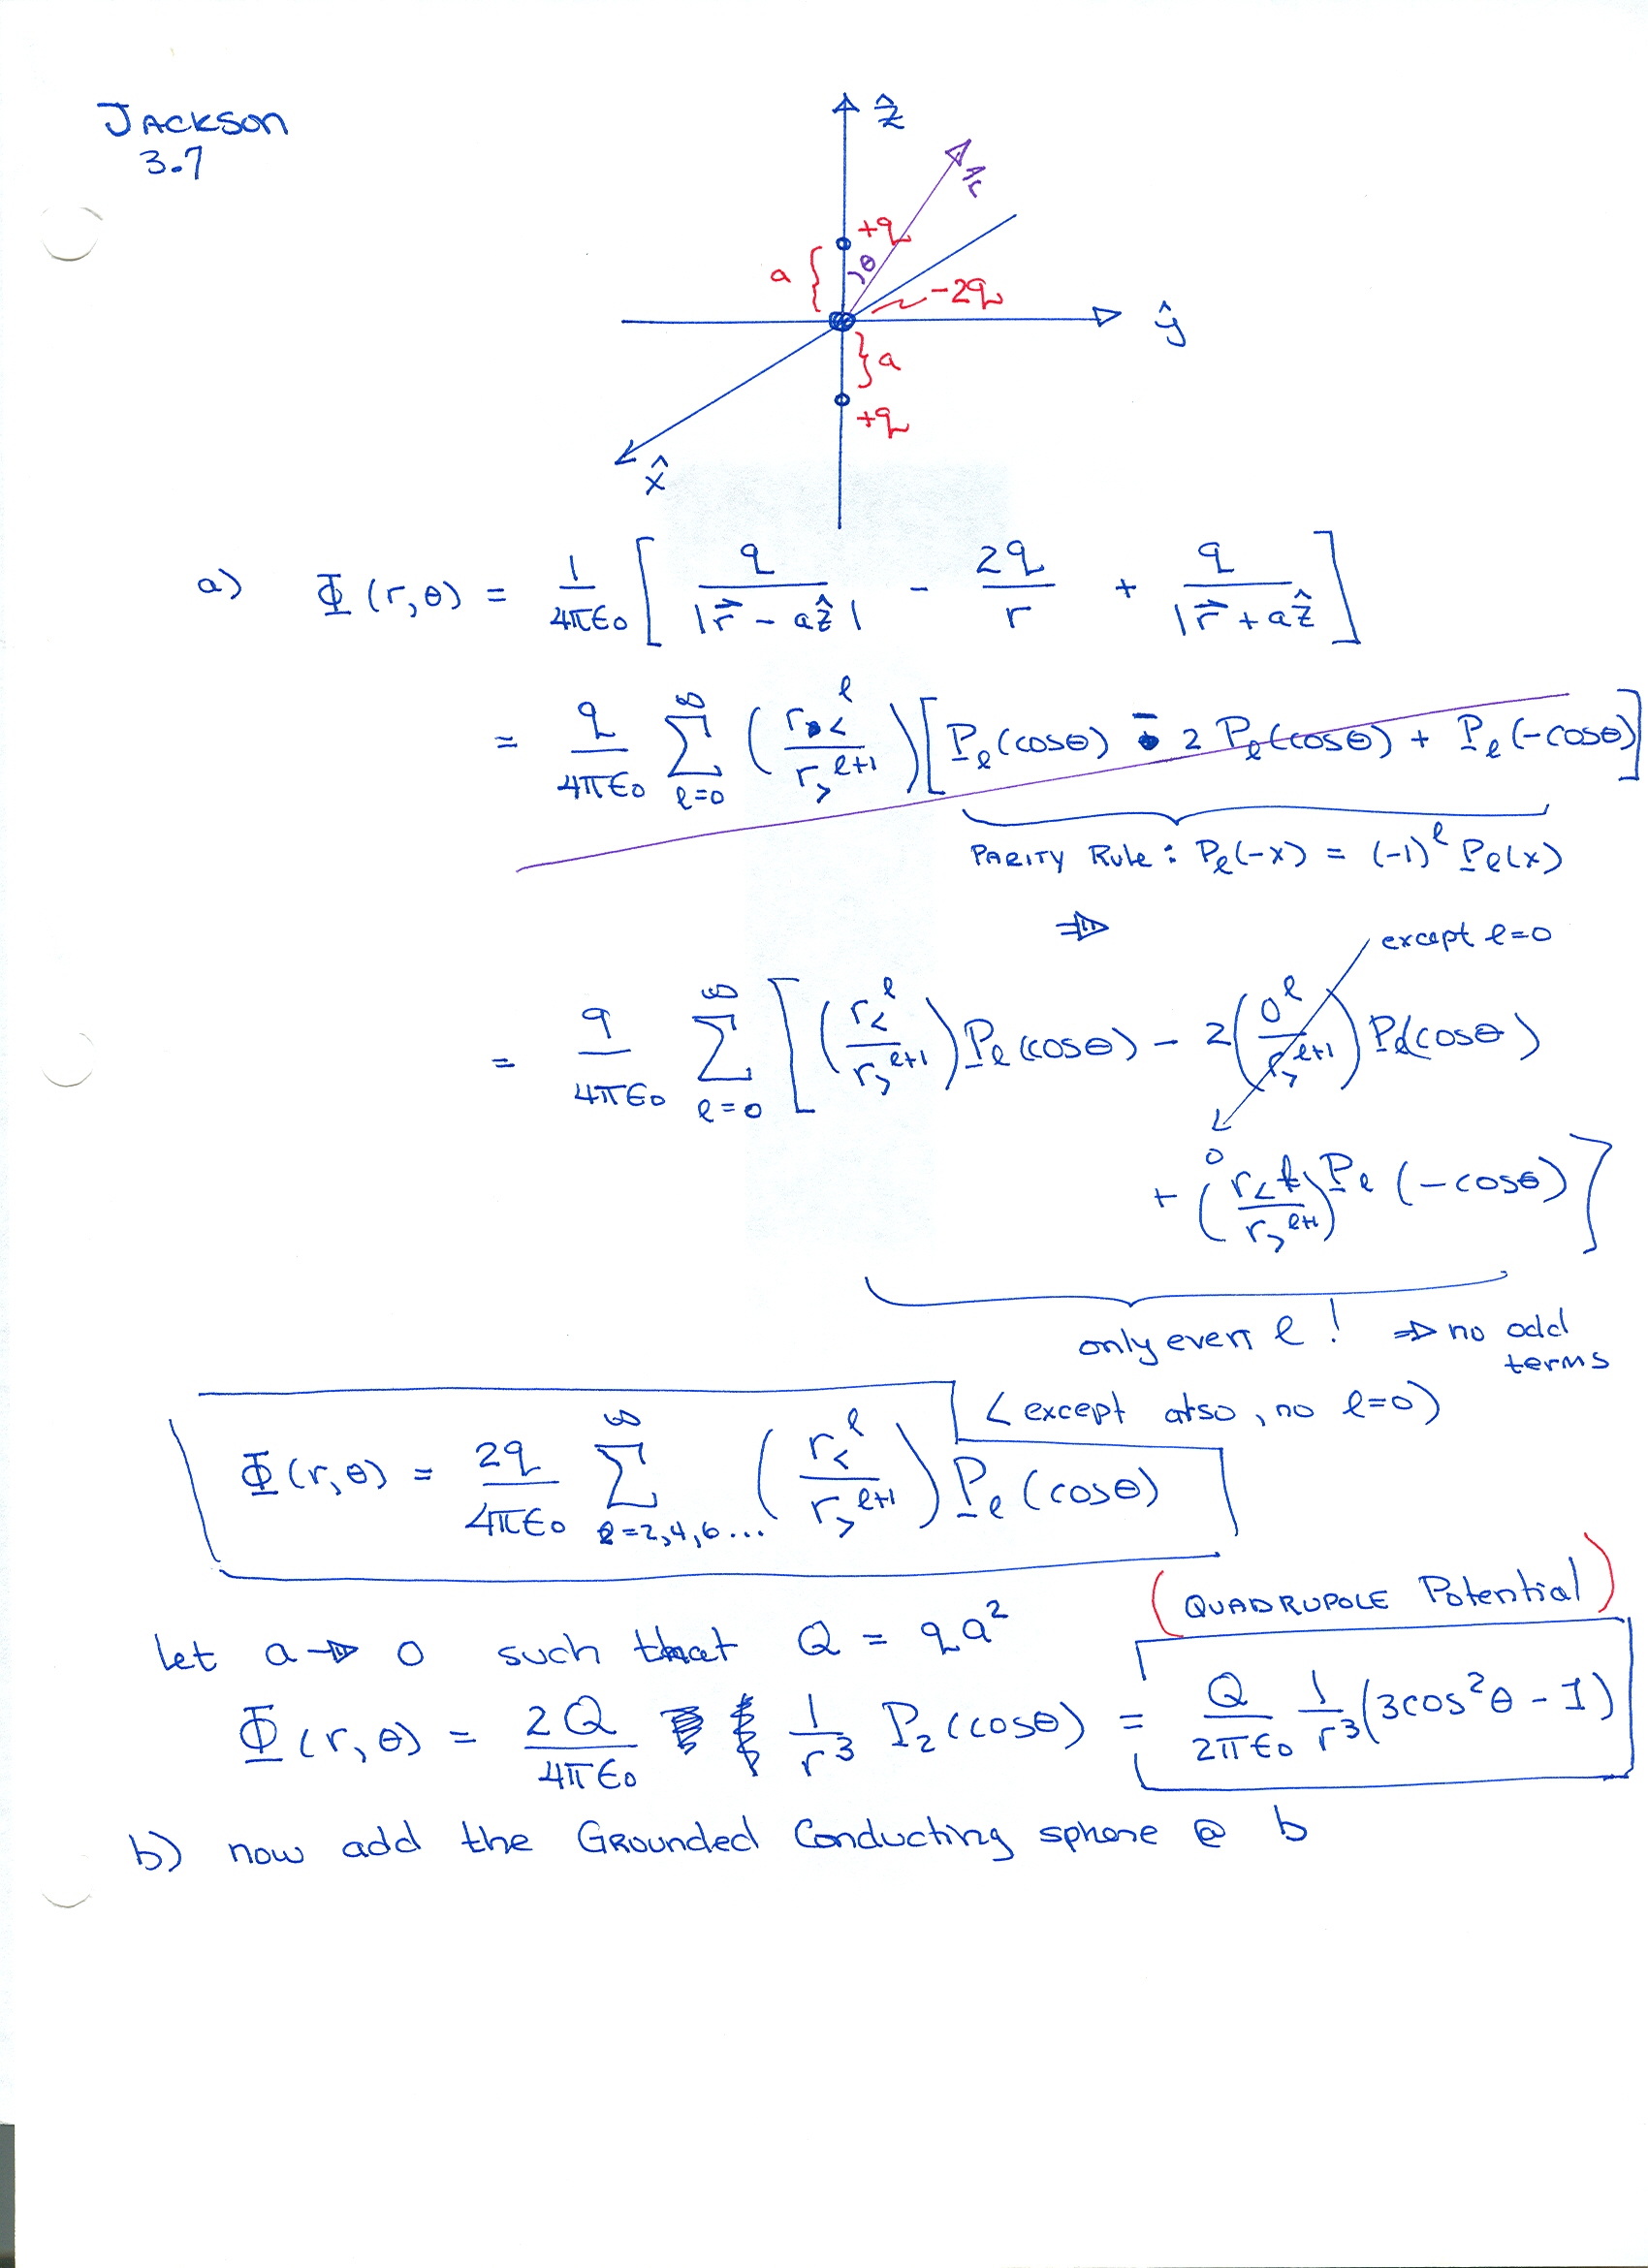 Jackson
3.7
ẑ
r⃗
+q
a { θ
-2q
ŷ
} a
+q
x̂
a) Φ(r,θ) = 1/4πε₀ [ q/|r⃗ - aẑ| - 2q/r + q/|r⃗ + aẑ ]
= q/4πε₀ ∑_{l=0}^{∞} ( r_<^l / r_>^{l+1} ) [ P_l(cosθ) - 2 P_l(cosθ) + P_l(-cosθ) ]
Parity Rule : P_l(-x) = (-1)^l P_l(x)
⇒
except l=0
= q/4πε₀ ∑_{l=0}^{∞} [ ( r_<^l / r_>^{l+1} ) P_l(cosθ) - 2 ( 0^l / r_>^{l+1} ) P_l(cosθ)
0
+ ( r_<^l / r_>^{l+1} ) P_l(-cosθ) ]
only even l ! ⇒ no odd
terms
(except also, no l=0)
Φ(r,θ) = 2q/4πε₀ ∑_{l=2,4,6...}^{∞} ( r_<^l / r_>^{l+1} ) P_l(cosθ)
(Quadrupole Potential)
let a → 0 such that Q = qa²
Φ(r,θ) = 2Q/4πε₀ 1/r³ P₂(cosθ) = Q/2πε₀ 1/r³ (3cos²θ - 1)
b) now add the Grounded Conducting sphere @ b